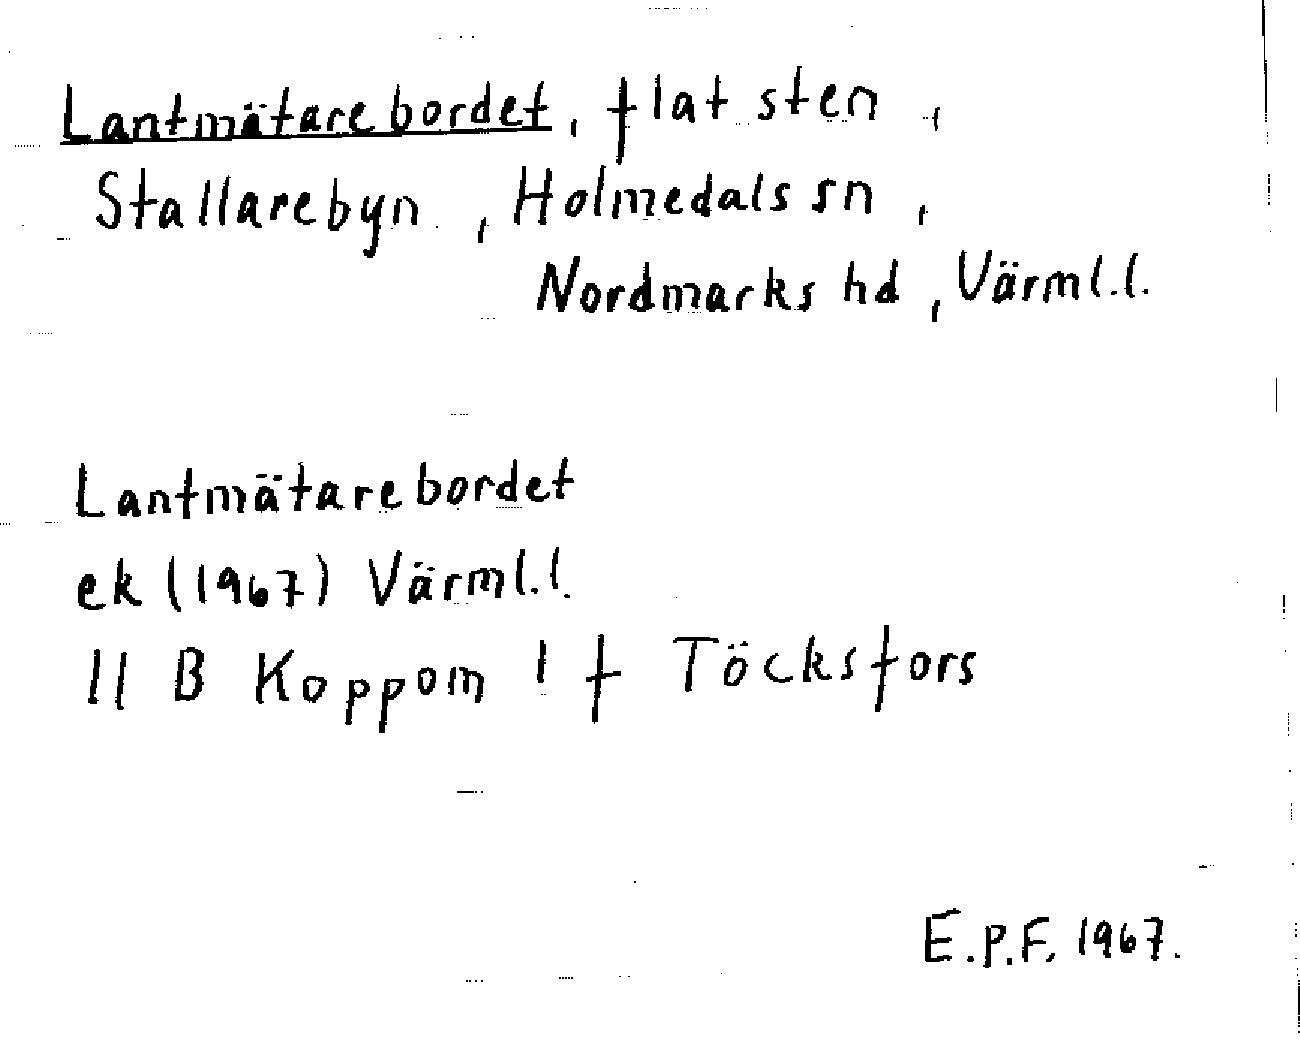 Lantmätarebordet, flat sten,
Stallarebyn, Holmedals sn,
Nordmarks hd, Värml.l.
Lantmätarebordet
ek (1967) Värml.l.
11 B Koppom ! f Töcksfors
E.P.F. 1967.